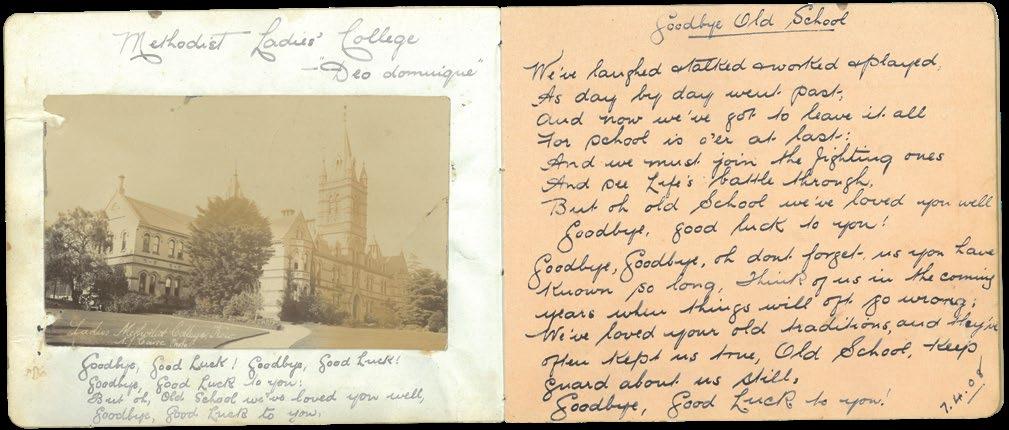 Methodist Ladies' College
"Deo domuique"
Ladies Methodist College, Kew
Goodbye, Good Luck! Goodbye, Good Luck!
Goodbye, Good Luck to you:
But oh, Old School we've loved you well,
Goodbye, Good Luck to you.
Goodbye Old School
We've laughed & talked & worked & played,
As day by day went past,
And now we've got to leave it all
For school is o'er at last:
And we must join the fighting ones
And see Life's battle through,
But oh old School we've loved you well
Goodbye, good luck to you!
Goodbye, Goodbye, oh dont forget us you have
known so long, Think of us in the coming
years when things will oft go wrong;
We've loved your old traditions, and they've
often kept us true, Old School, Keep
guard about us still,
Goodbye, Good Luck to you!
7.4.08